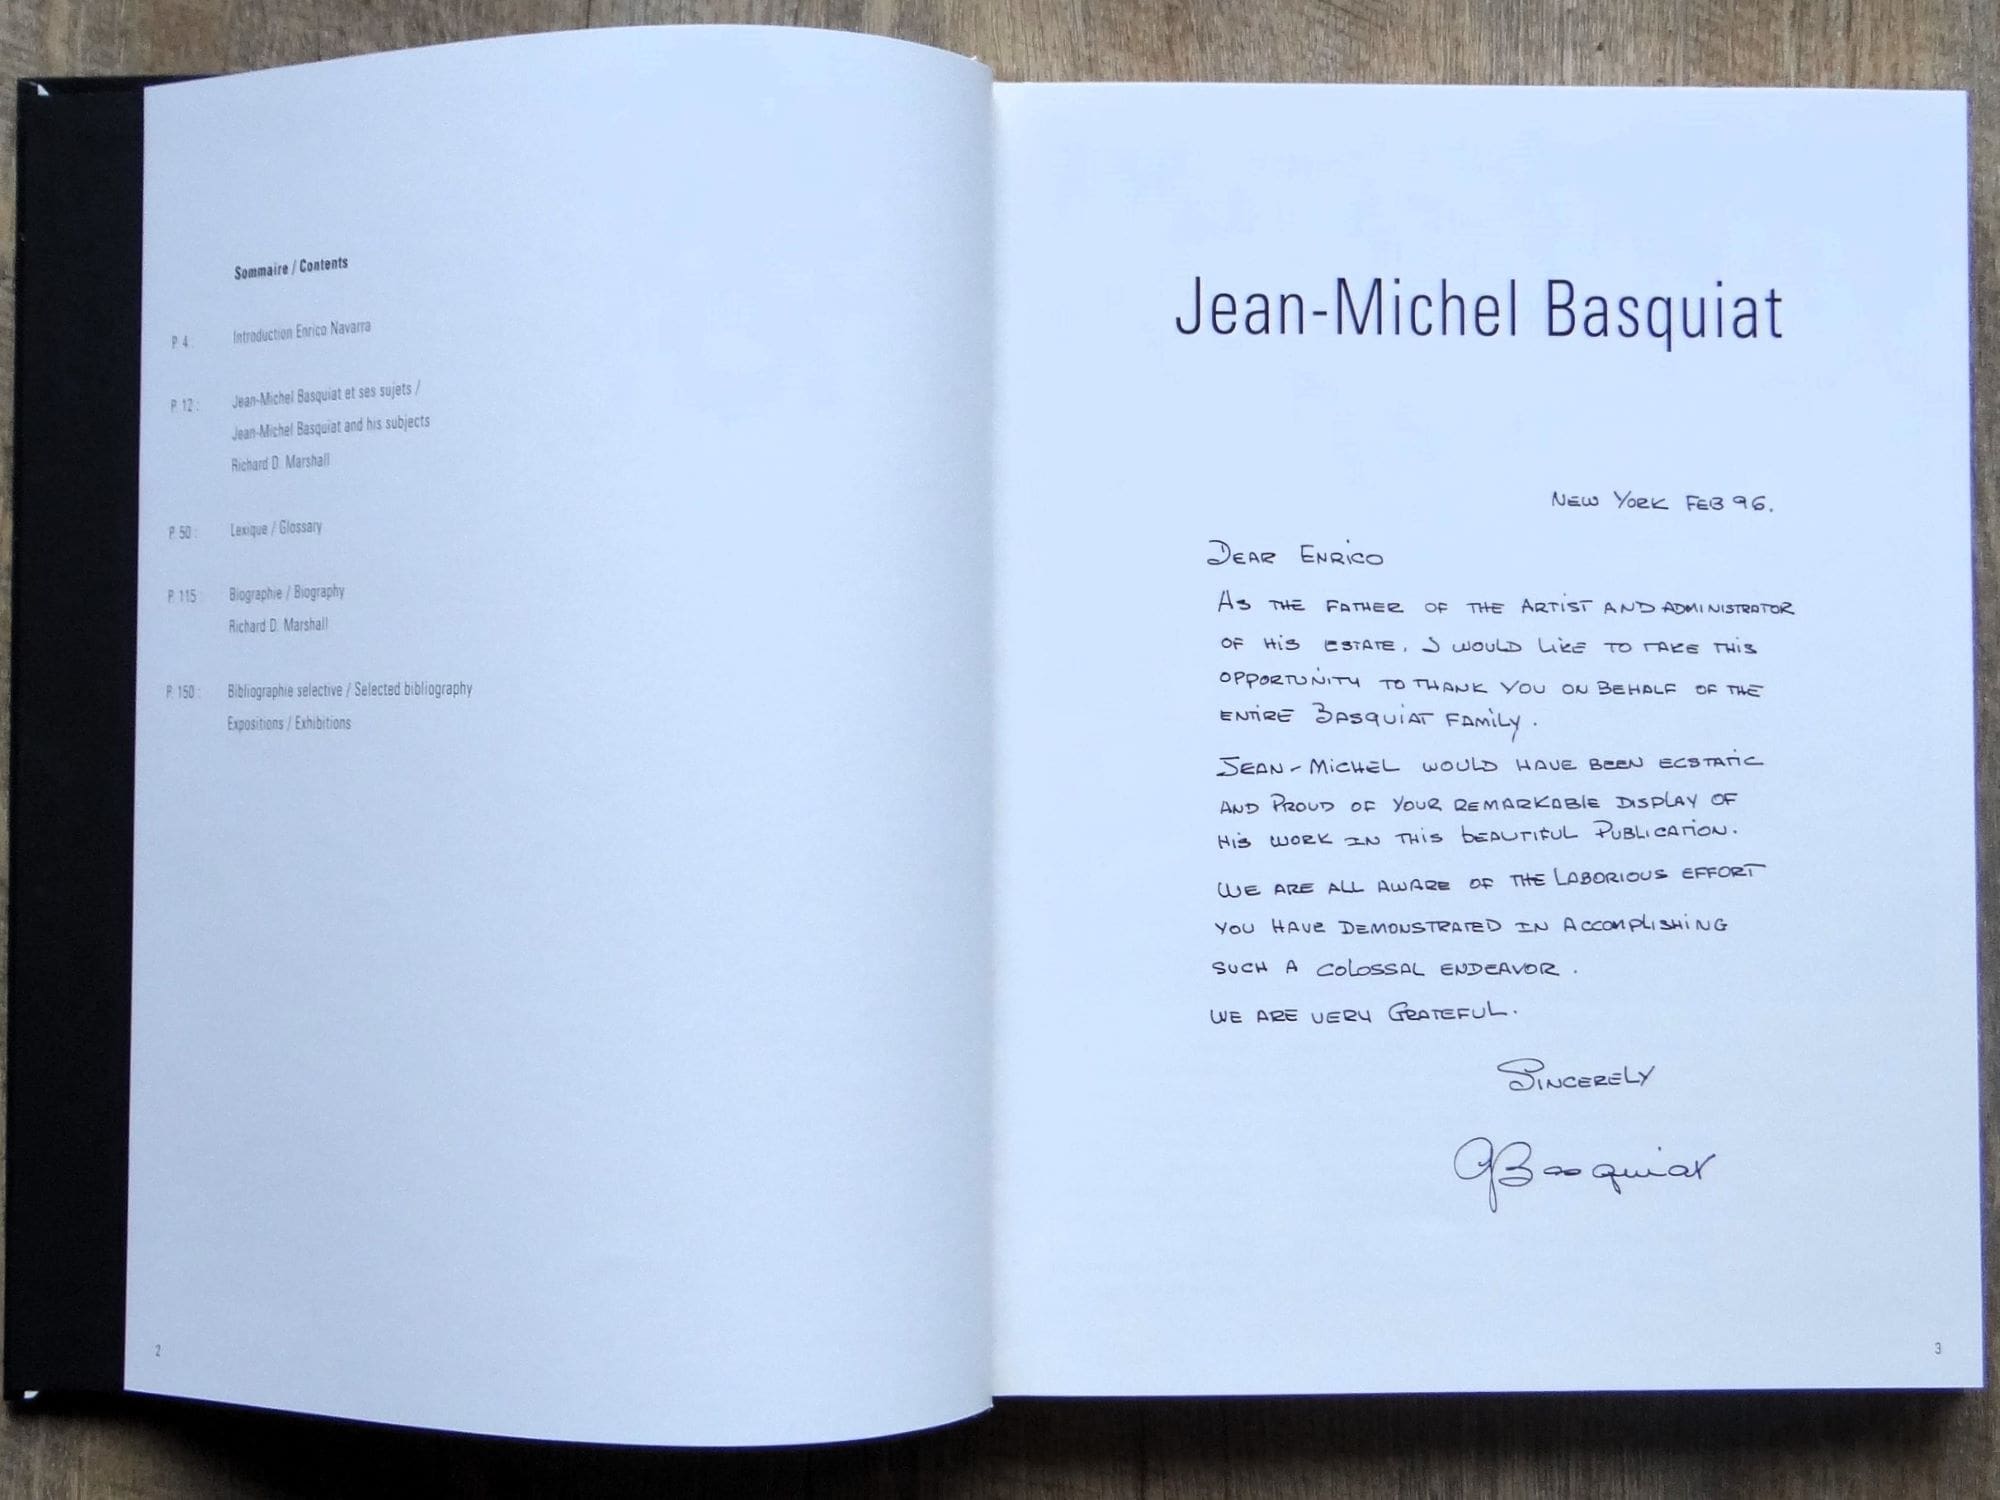 Sommaire / Contents
P. 4 : Introduction Enrico Navarra
P. 12 : Jean-Michel Basquiat et ses sujets /
Jean-Michel Basquiat and his subjects
Richard D. Marshall
P. 50 : Lexique / Glossary
P. 115 Biographie / Biography
Richard D. Marshall
P. 150 : Bibliographie selective / Selected bibliography
Expositions / Exhibitions
2
Jean-Michel Basquiat
NEW YORK FEB 96.
DEAR ENRICO
AS THE FATHER OF THE ARTIST AND ADMINISTRATOR
OF HIS ESTATE, I WOULD LIKE TO TAKE THIS
OPPORTUNITY TO THANK YOU ON BEHALF OF THE
ENTIRE BASQUIAT FAMILY.
JEAN-MICHEL WOULD HAVE BEEN ECSTATIC
AND PROUD OF YOUR REMARKABLE DISPLAY OF
HIS WORK IN THIS BEAUTIFUL PUBLICATION.
WE ARE ALL AWARE OF THE LABORIOUS EFFORT
YOU HAVE DEMONSTRATED IN ACCOMPLISHING
SUCH A COLOSSAL ENDEAVOR.
WE ARE VERY GRATEFUL.
SINCERELY
GBasquiat
3